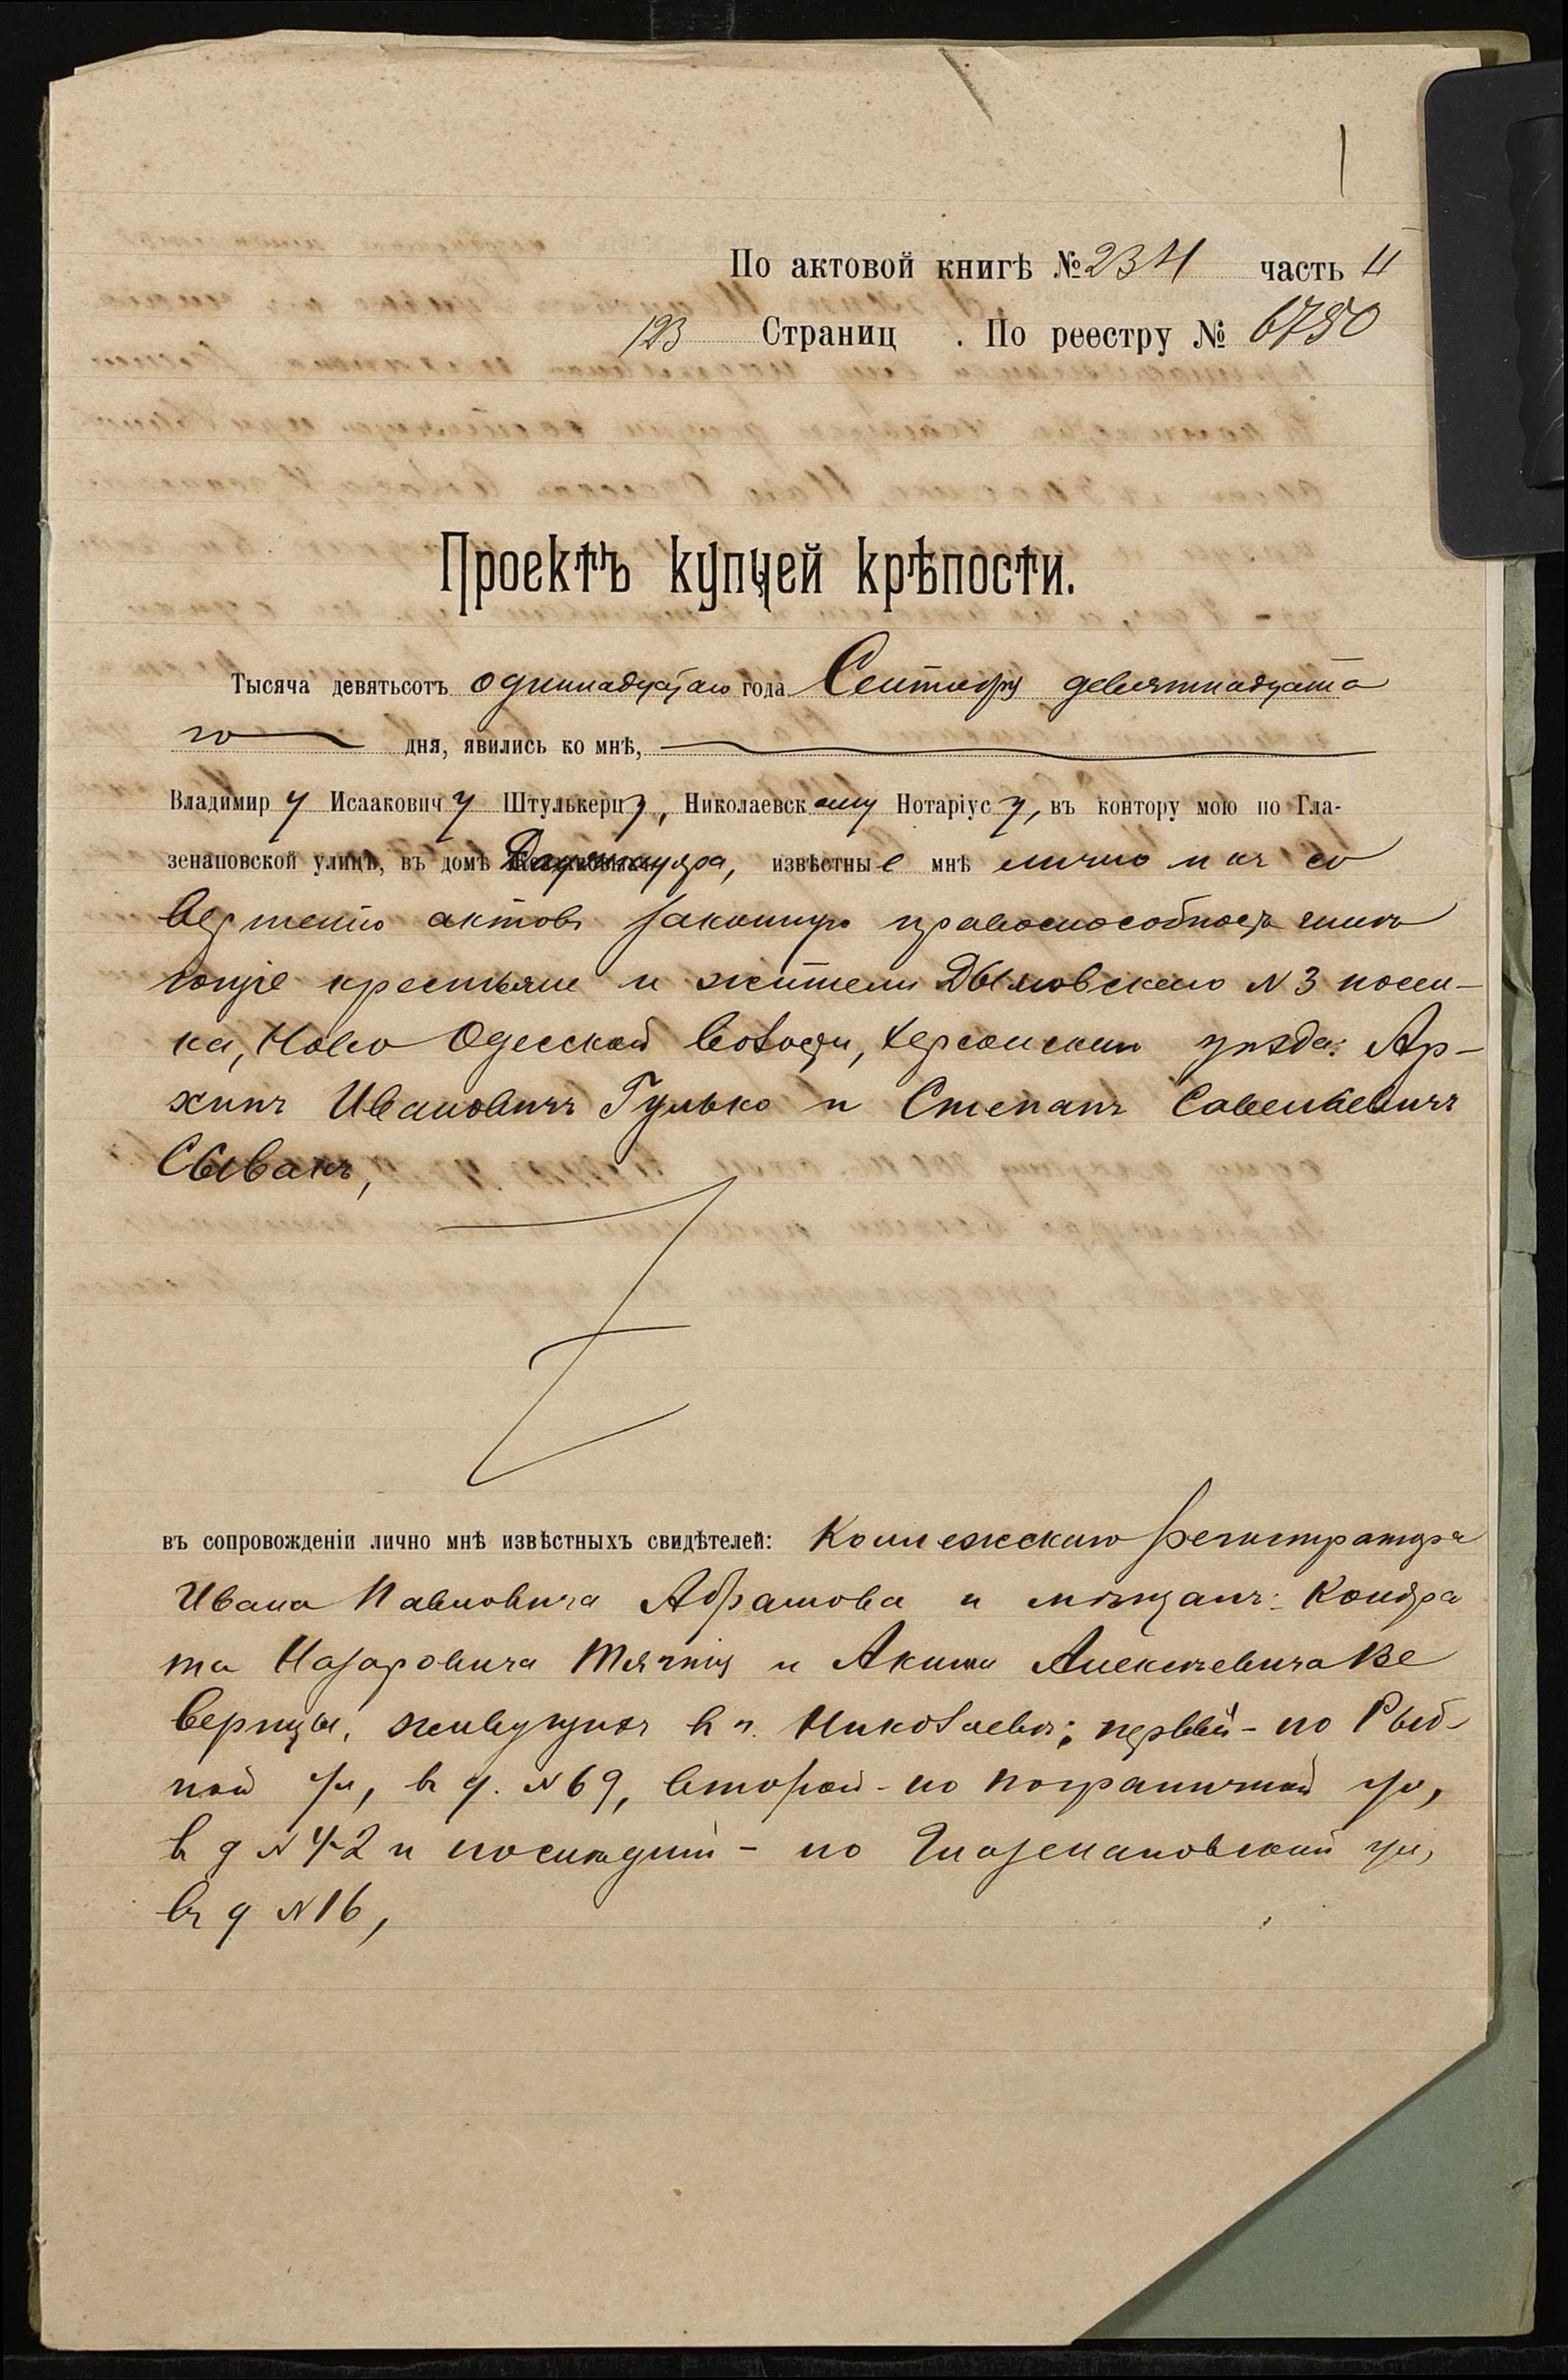 1
По актовой книгѣ № 234 часть II
123 Страниц . По реестру № 6750
Проектъ купчей крѣпости.
Тысяча девятьсотъ одиннадцатаго года Сентября девятнадцата
го дня, явились ко мнѣ,
Владимиру Исааковичу Штулькерцу, Николаевскому Нотаріусу, въ контору мою по Гла-
зенаповской улицѣ, въ домѣ извѣстные мнѣ лично и къ со
вершенію актовъ законную правоспособность имѣю
ющіе крестьяне и жители Дымовскаго № 3 посел-
ка, Ново Одесской волости, Херсонскаго уѣзда: Ар-
хипъ Ивановичъ Гулько и Степанъ Савельевичъ
Сываκъ,
въ сопровожденіи лично мнѣ извѣстныхъ свидѣтелей: Коллежскаго Регистратора
Ивана Павловича Абрамова и мѣщанъ: Кондра
та Назаровича и Акима Алексѣевича Ве
верицы, живущихъ въ г. Николаевѣ; первый - по Рыб-
ной ул, въ д. № 69, второй - по Пограничной ул,
въ д № 42 и послѣдній - по Глазенаповской ул,
въ д № 16,